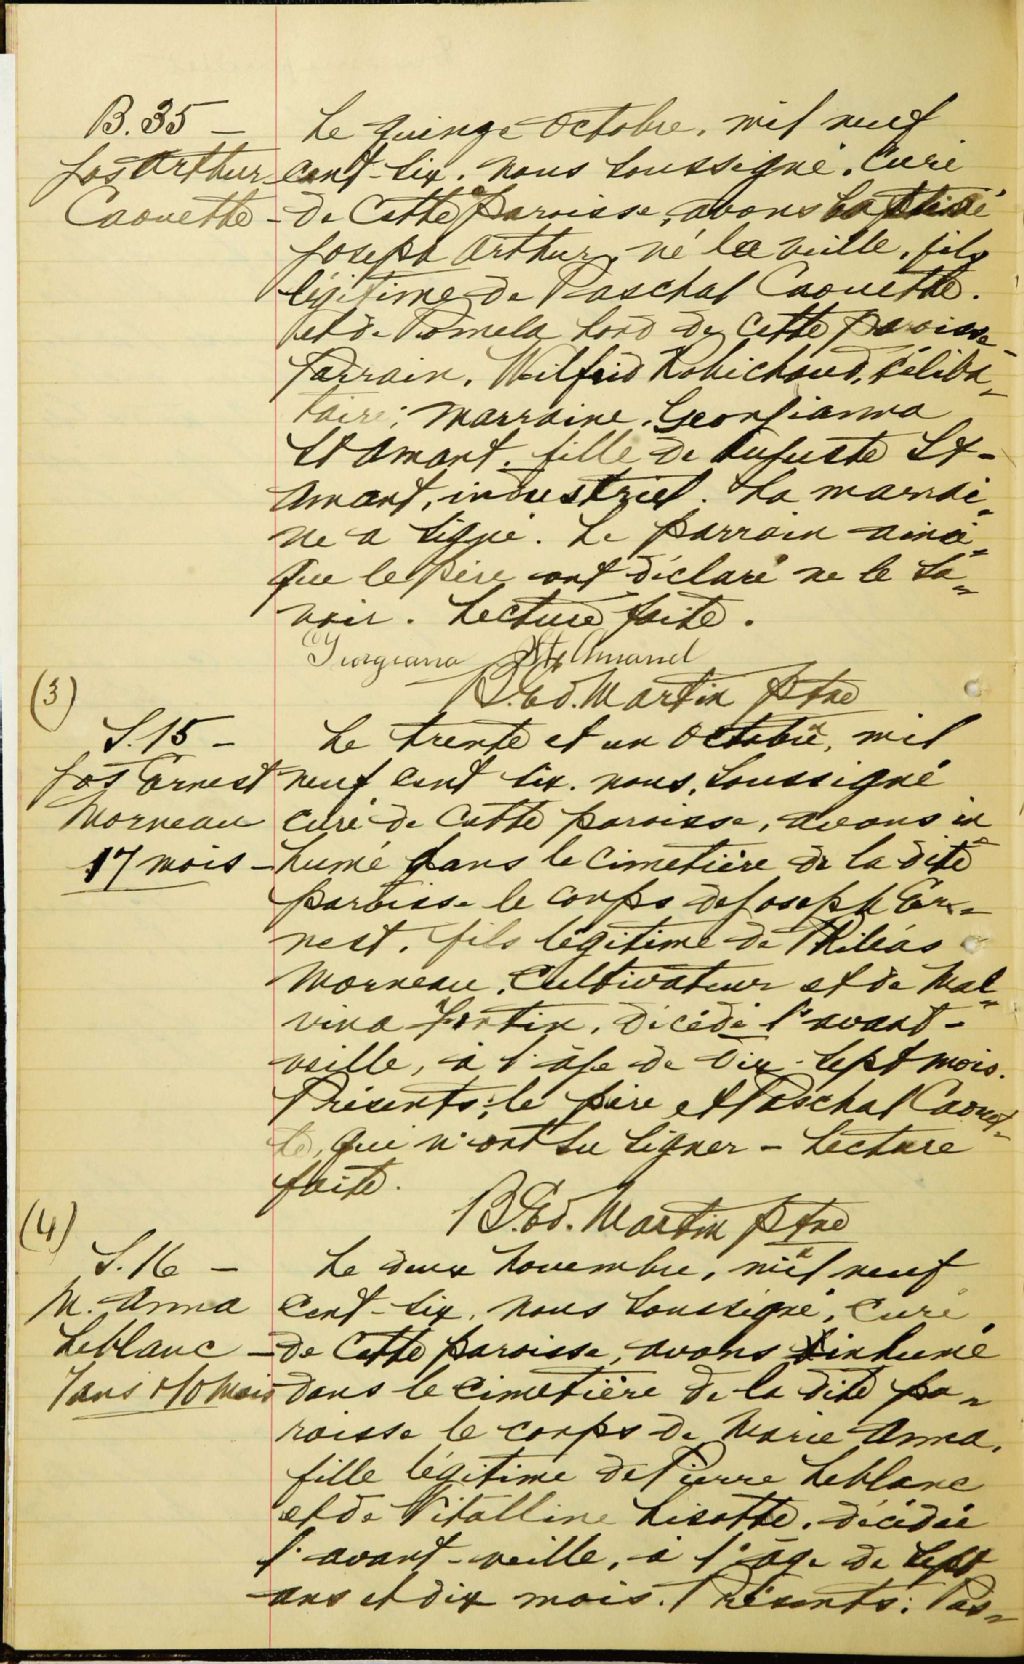 B. 35 -
Jos Arthur
Caouette -
Le quinze Octobre, mil neuf
cent-six, nous soussigné, Curé
de cette paroisse, avons baptisé
Joseph Arthur, né la veille, fils
légitime de Paschal Caouette
et de Pomela Lord de cette paroisse
Parrain, Wilfrid Robichaud, céliba-
taire; marraine, Georgianna
St Amant, fille de Auguste St-
Amant, industriel. La marrai-
ne a signé. Le parrain ainsi
que le père ont déclaré ne le sa-
voir. Lecture faite.
Georgiana St Amand
B. Ed. Martin ptre
(3)
S. 15 -
Jos Ernest
Morneau
17 mois -
Le trente et un Octobre, mil
neuf cent six, nous, soussigné
curé de cette paroisse, avons in-
humé dans le cimetière de la dite
paroisse le corps de Joseph Er-
nest, fils légitime de Philéas
Morneau, Cultivateur et de Mal-
vina Fortin, décédé l'avant-
veille, à l'âge de dix-sept mois.
Présents: le père et Paschal Caouet-
te, qui n'ont su signer - Lecture
faite.
B. Ed. Martin ptre
(4)
S. 16 -
M. Anna
Leblanc -
7 ans & 10 mois
Le deux Novembre, mil neuf
cent-six, nous soussigné, Curé
de cette paroisse, avons inhumé
dans le cimetière de la dite pa-
roisse le corps de Marie Anna,
fille légitime de Pierre Leblanc
et de Vitalline Lisotte, décédée
l'avant-veille, à l'âge de sept
ans et dix mois. Présents: Pas-